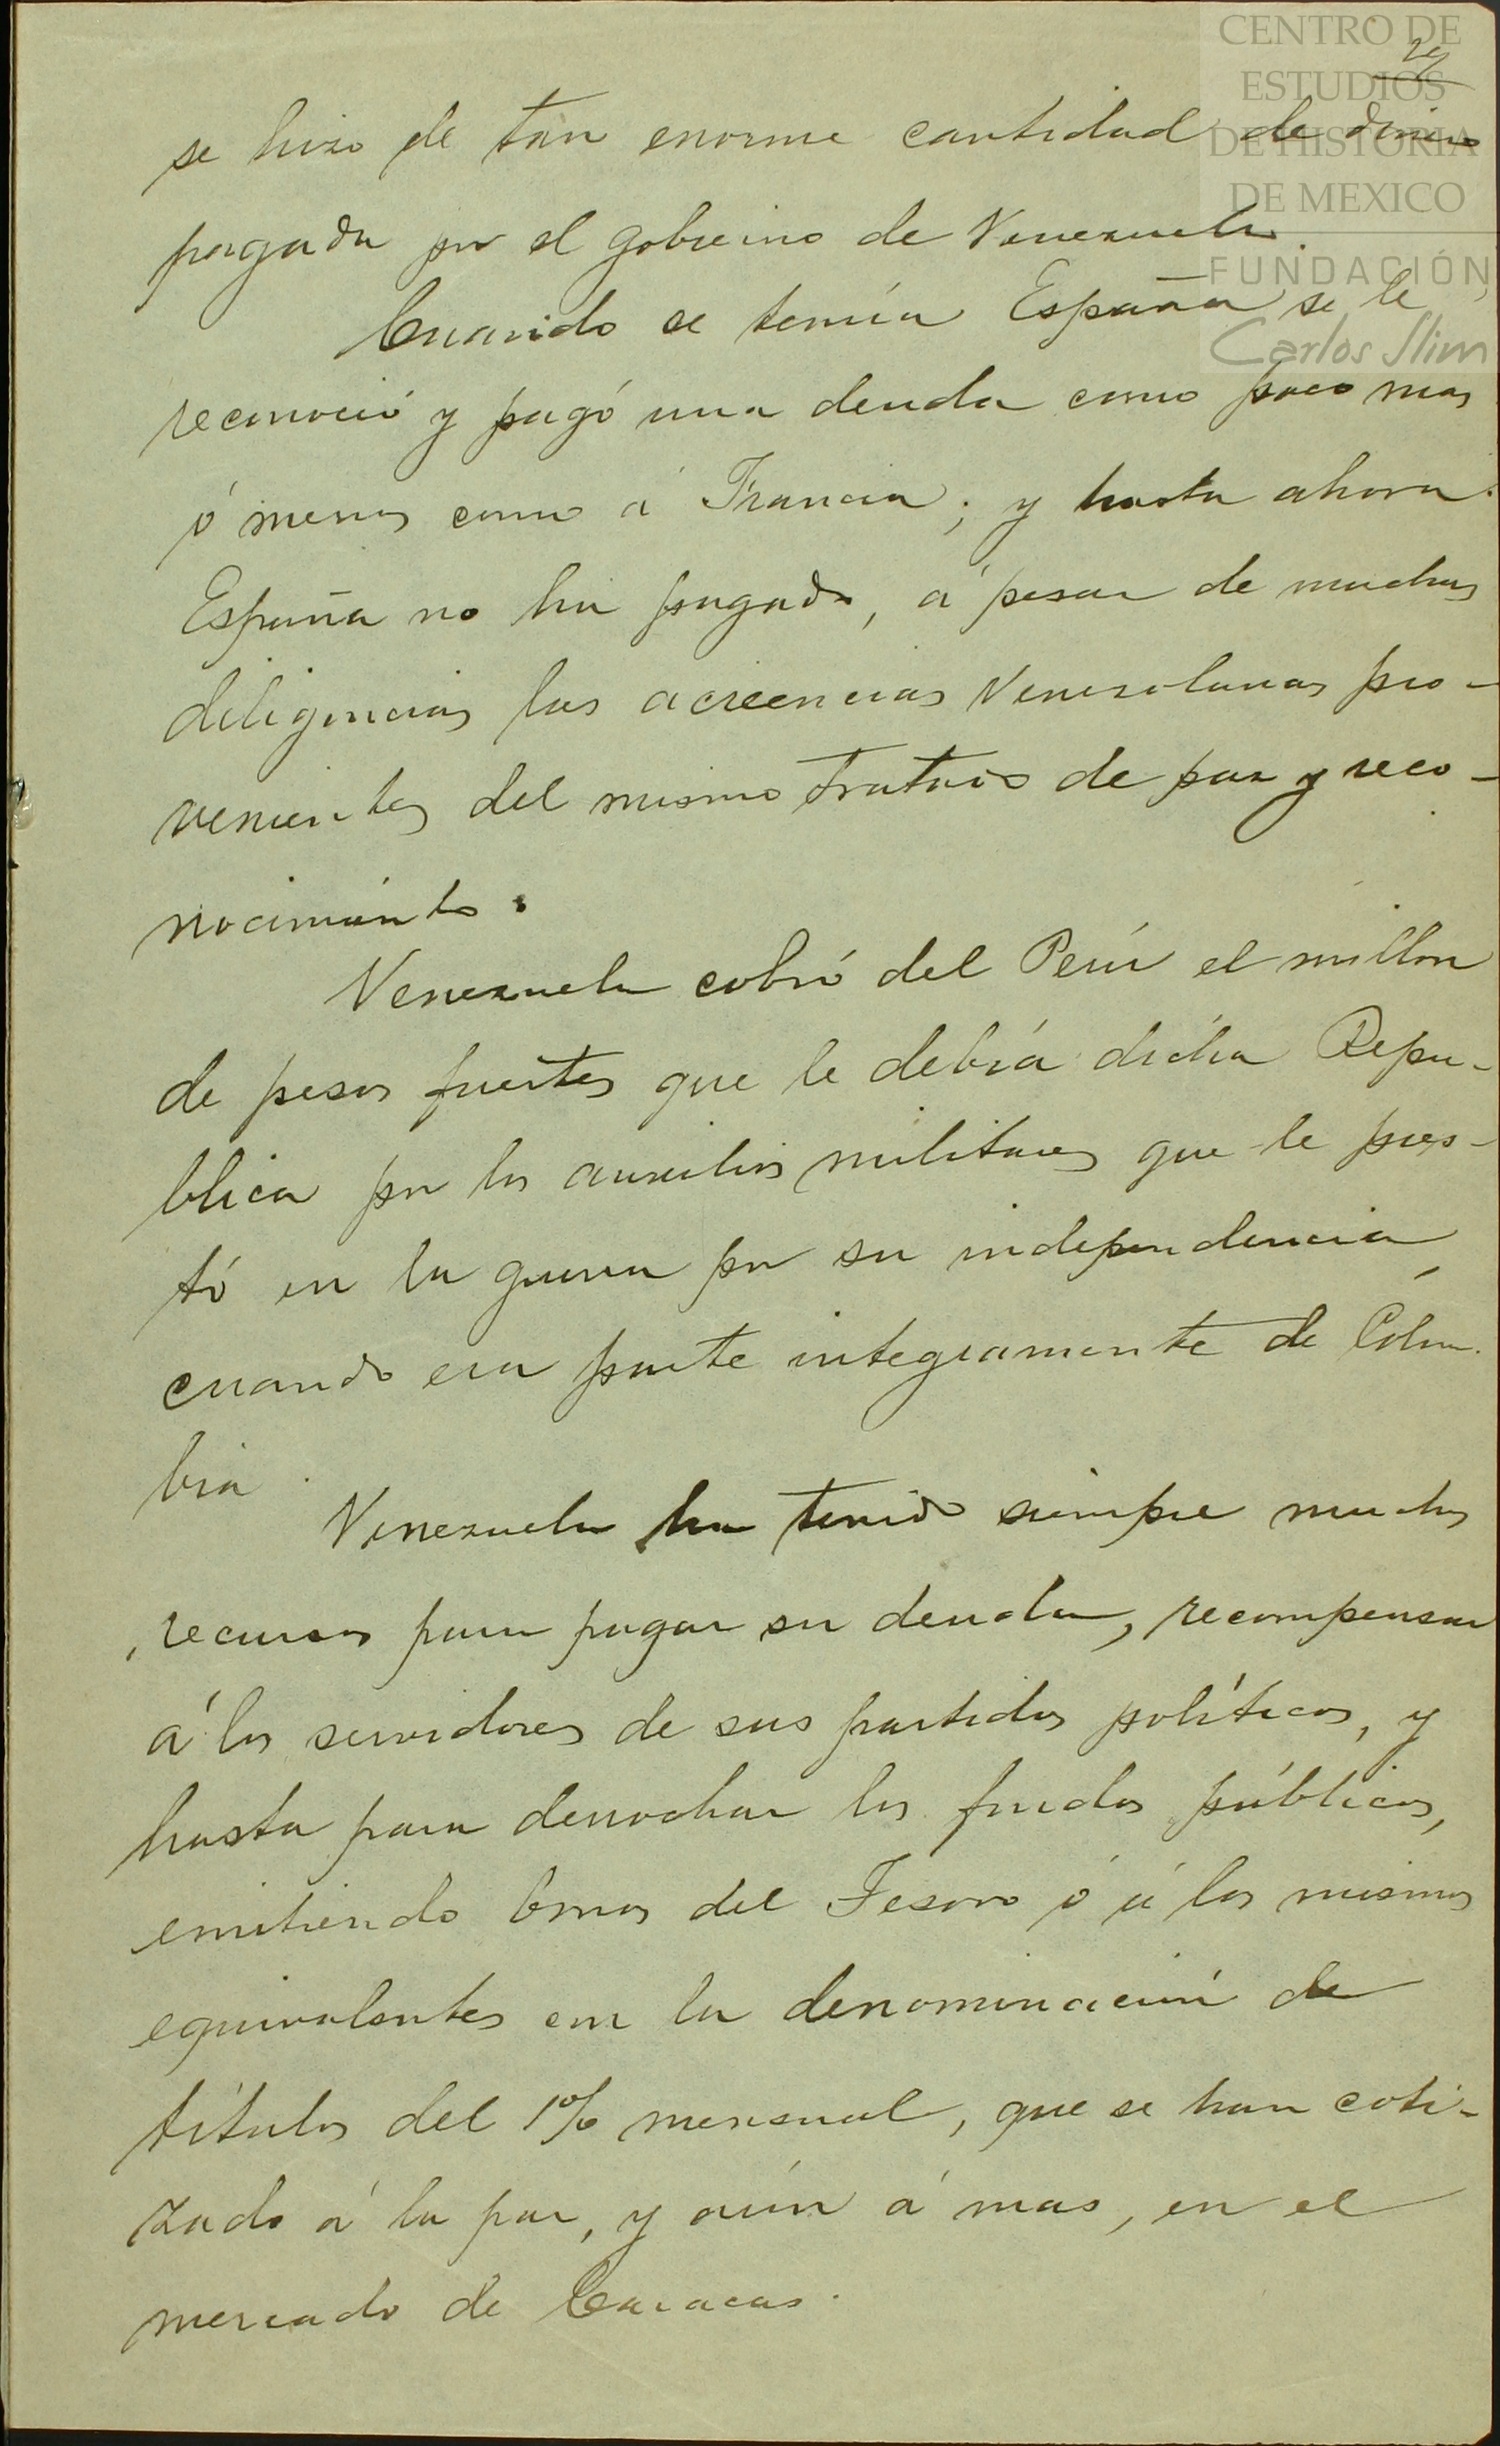 CENTRO DE
ESTUDIOS
DE HISTORIA
DE MEXICO
FUNDACIÓN
Carlos Slim
se hizo de tan enorme cantidad de dinero
pagada por el gobierno de Venezuela.
Cuando se temía España se le
reconoció y pagó una deuda como poco mas
ó menos como á Francia; y hasta ahora
España no ha pagado, á pesar de muchas
diligencias las acreencias Venezolanas pro-
venientes del mismo tratado de paz y reco-
nocimiento.
Venezuela cobró del Perú el millon
de pesos fuertes que le debía dicha Repu-
blica por los auxilios militares que le pres-
tó en la guerra por su independencia,
cuando era parte integramente de Colom-
bia.
Venezuela ha tenido siempre muchos
recursos para pagar su deuda, recompensar
á los servidores de sus partidos políticos, y
hasta para derrochar los fondos públicos,
emitiendo bonos del Tesoro ó á los mismos
equivalentes con la denominación de
títulos del 1% mensual, que se han coti-
zado á la par, y aún á mas, en el
mercado de Caracas.